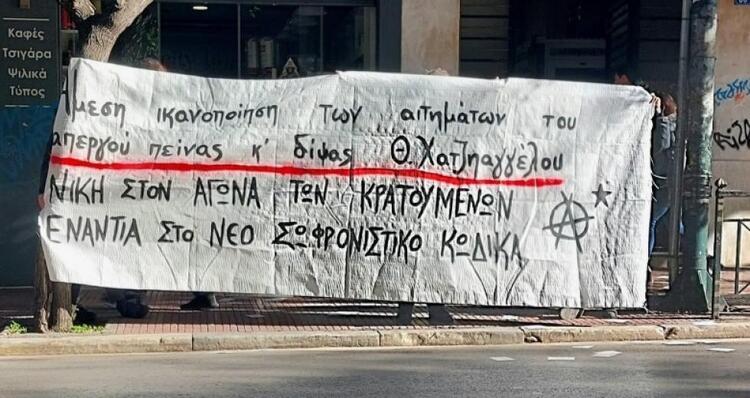 Καφές
Τσιγάρα
Ψιλικά
Τύπος
Άμεση ικανοποίηση των αιτημάτων του
απεργού πείνας κ' δίψας Θ. Χατζηαγγέλου
ΝΙΚΗ ΣΤΟΝ ΑΓΩΝΑ ΤΩΝ ΚΡΑΤΟΥΜΕΝΩΝ
ΕΝΑΝΤΙΑ ΣΤΟ ΝΕΟ ΣΩΦΡΟΝΙΣΤΙΚΟ ΚΩΔΙΚΑ